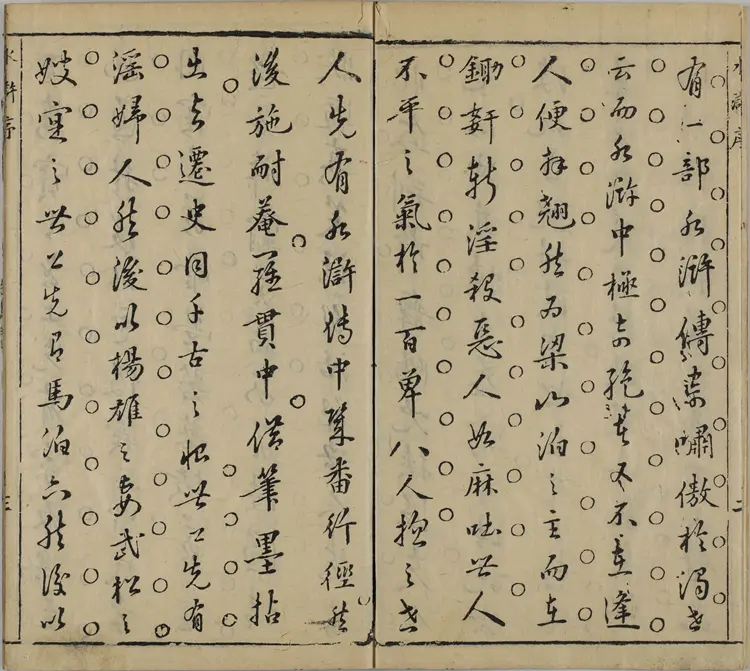 水滸序 二
有一部水滸傳嘯傲於濁世
云而水滸中極奇絕者又不在逢
人便拜翹然為梁山泊之主而在
鋤奸斬淫殺惡人如麻吐世人
不平之氣於一百單八人揔之世
人先有水滸傳中幾番行徑然
後施耐菴羅貫中借筆墨拈
出與遷史同千古之恨世上先有
淫婦人然後以楊雄之妻武松之
嫂實之世上先有馬泊六然後以
水滸序 三